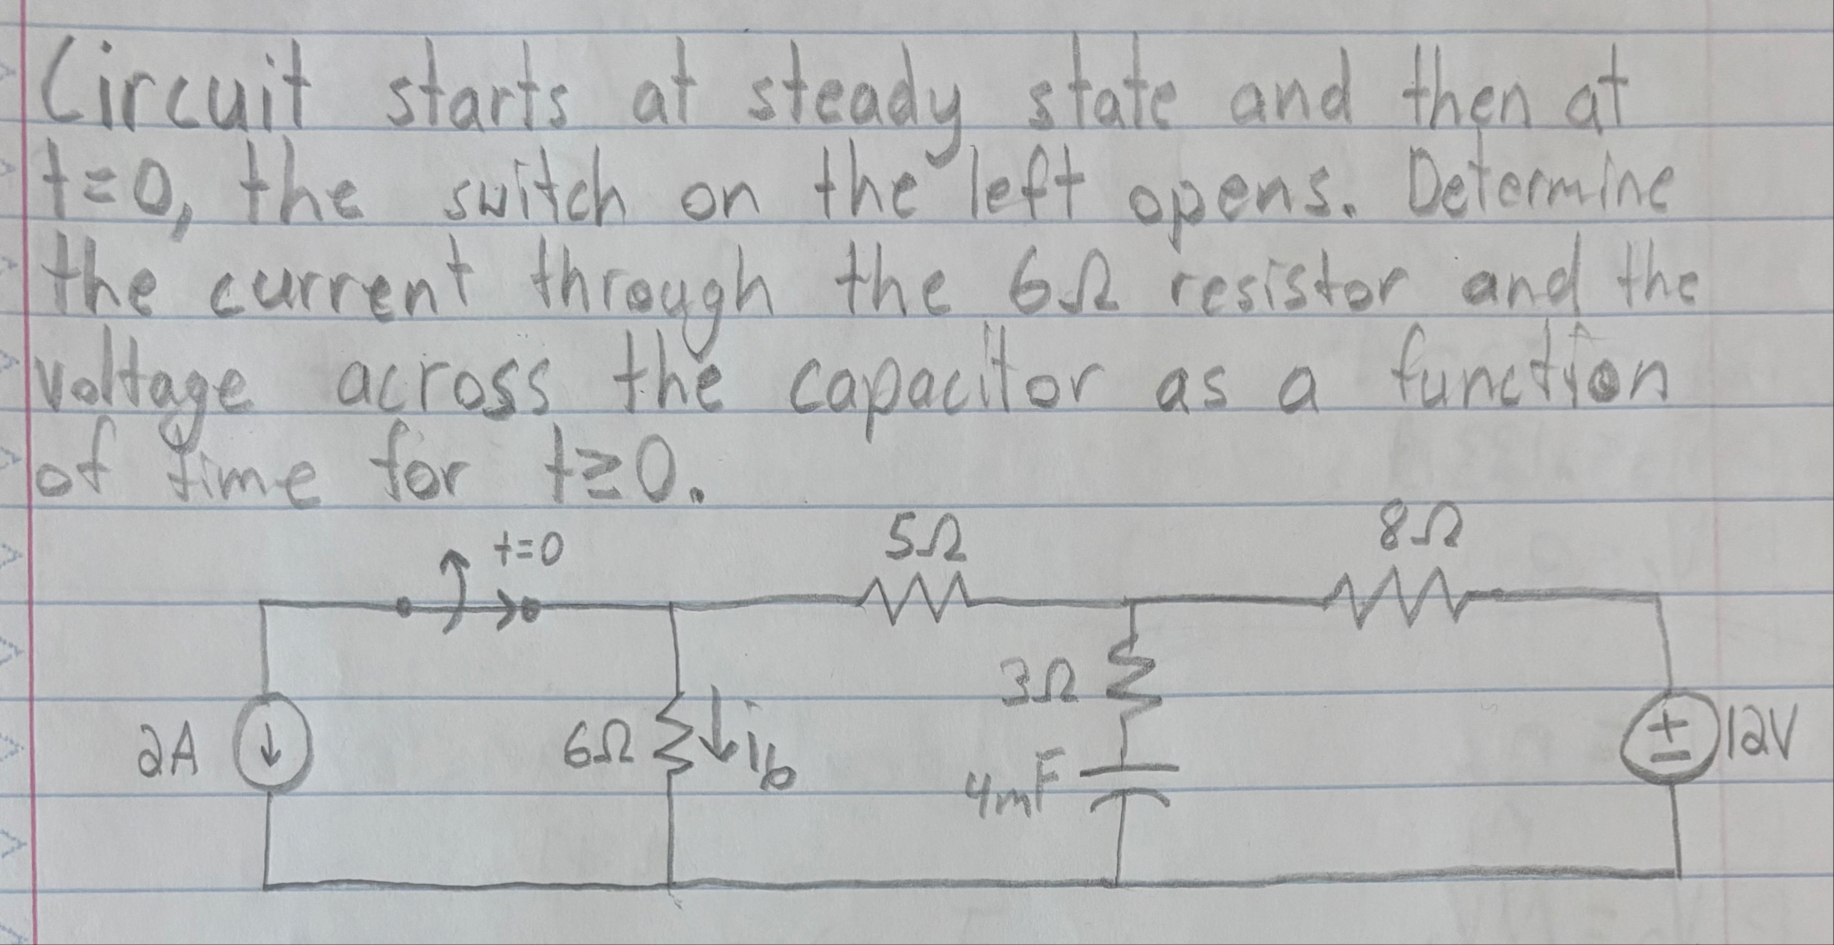 Circuit starts at steady state and then at
t=0, the switch on the left opens. Determine
the current through the 6Ω resistor and the
voltage across the capacitor as a function
of time for t≥0.
t=0
5Ω
8Ω
3Ω
2A
6Ω
i6
4mF
+
−
12V